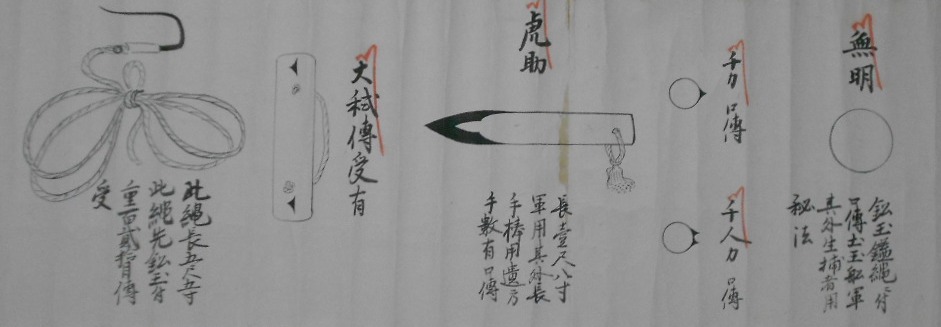 無明
鉛玉鎰縄ニ付
口傳土玉船軍
其外生捕者用
秘法
千力 口傳
千人力 口傳
虎助
長壹尺八寸
軍用其外長
手棒用遣方
手数有口傳
大秘傳受有
此縄長五尺五寸
此縄先鉛玉付
重百貳拾目傳
受